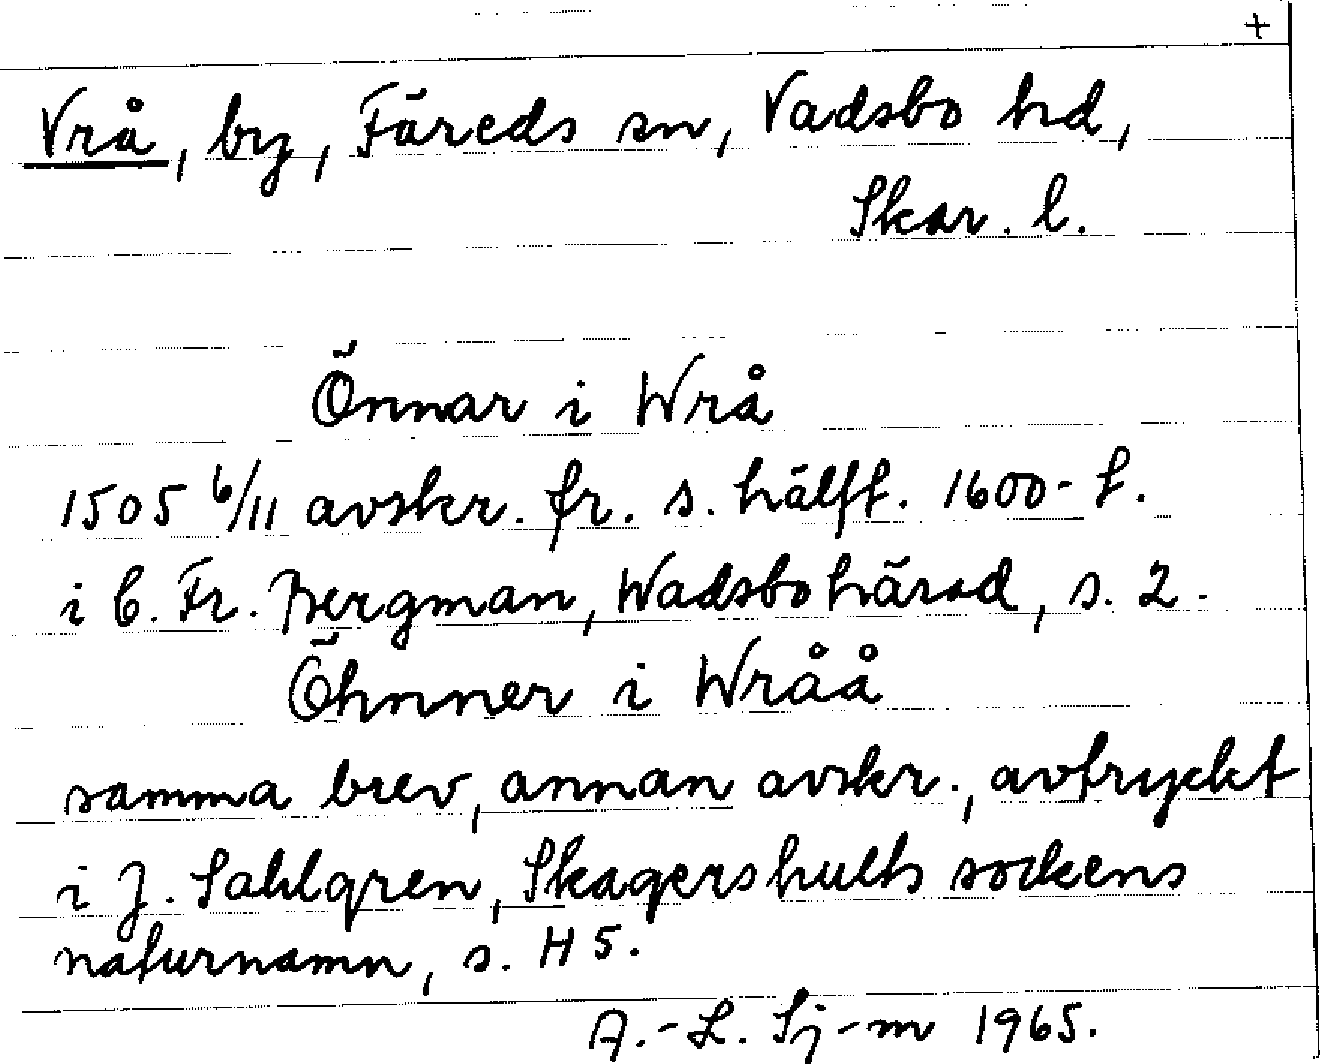 +
Vrå, by, Färeds sn, Vadsbo hd,
Skar. l.
Önnar i Wrå
1505 6/11 avskr. fr. s. hälft. 1600-t.
i C. Fr. Bergman, Wadsbo härad, s. 2.
Öhnner i Wråå
samma brev, annan avskr., avtryckt
i J. Sahlgren, Skagershults sockens
naturnamn, s. H 5.
A.-L. Sj-m 1965.